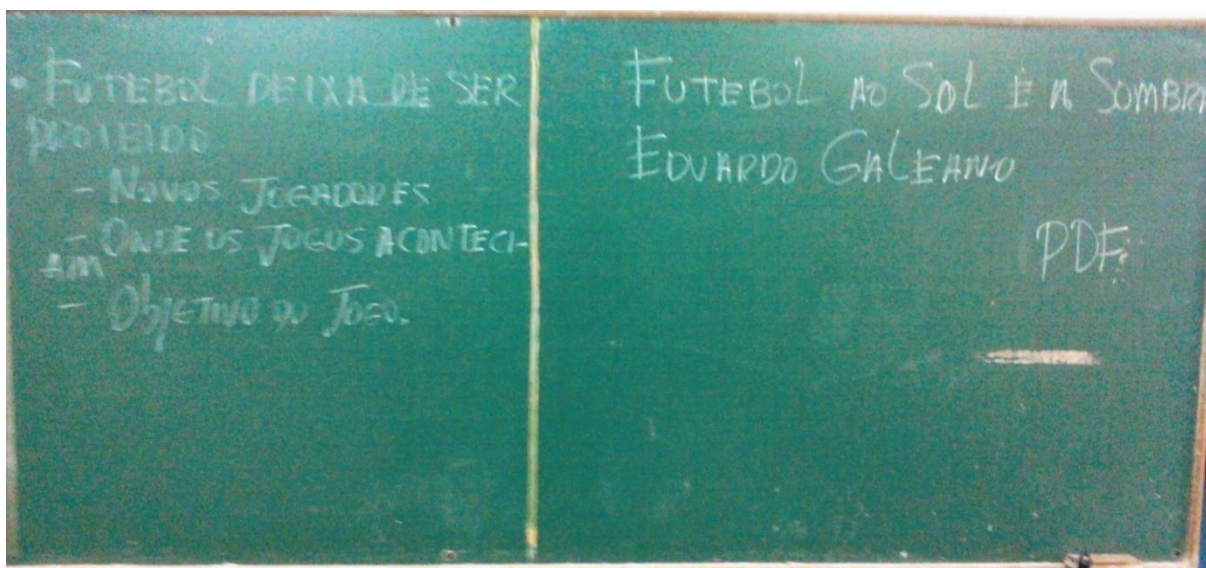 • FUTEBOL DEIXA DE SER
PROIBIDO
- NOVOS JOGADORES
- ONDE OS JOGOS ACONTECI-
AM
- ObjETIVO DO JOGO.
FUTEBOL AO SOL E A SOMBRA
EDUARDO GALEANO
PDF